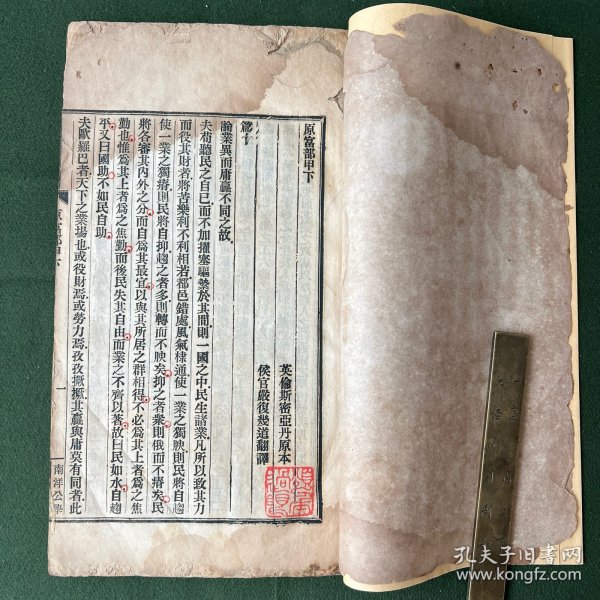 原富部甲下
英倫斯密亞丹原本
侯官嚴復幾道翻譯
篇十
論業異而庸贏不同之故
夫苟聽民之自已而不加擢塞驅縶於其間則一國之中民生諸業凡所以致其力
而役其財者將苦樂利不利相若都邑錯處風氣棣通使一業之獨腴則民將自趨
使一業之獨瘠則民將自抑趨之者多則轉而不腴矣抑之者衆則俄而不瘠矣民
將各審其內外之分而自為其最宜以與其所居之群相得不必為其上者為之焦
勤也惟為其上者為之焦勤而後民失其自由而業之不齊以著故曰民如水自趨
平又曰國助不如民自助
夫歐羅巴者天下之業場也或役財焉或勞力焉孜孜攈摭其贏與庸莫有同者此
一
南洋公學
孔夫子旧书网
www.kongfz.com